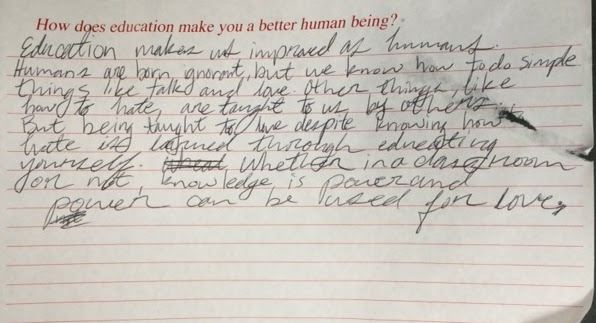 How does education make you a better human being?
Education makes us improved as humans.
Humans are born ignorant, but we know how to do simple
things like talk and love. Other things, like
how to hate, are taught to us by others.
But being taught to love despite knowing how
hate is learned through educating
yourself. Whether in a classroom
or not, knowledge is power and
power can be used for love.